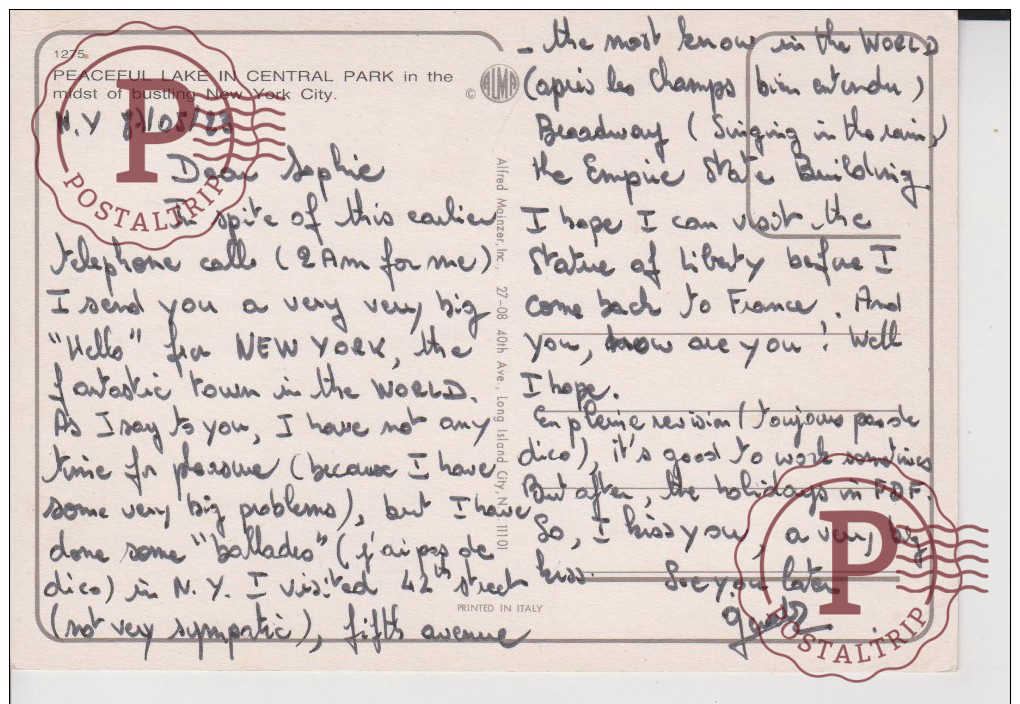 1275
PEACEFUL LAKE IN CENTRAL PARK in the
midst of bustling New York City.
© ALMA
N.Y /05/
Dear Sophie
In spite of this earlier
telephone call (2 Am for me)
I send you a very very big
"Hello" for NEW YORK, the
fantastic town in the WORLD.
As I say to you, I have not any
time for pleasure (because I have
some very big problems), but I have
done some "ballades" (j'ai pas de
dico) in N.Y. I visited 42th street
(not very sympatic), fifth avenue
Alfred Mainzer, Inc., 27-08 40th Ave., Long Island City, N.Y. 11101
PRINTED IN ITALY
- the most know in the WORLD
(après les Champs bien entendu)
Broadway (Singing in the rain,)
the Empire State Building.
I hope I can visit the
Statue of Liberty before I
come back to France. And
you, how are you! Well
I hope.
En pleine revision (toujours pas de
dico), it's good to work sometimes
But after, the holidays in FDF.
So, I kiss you, a very big
kiss. See you later
P
POSTALTRIP
P
POSTALTRIP